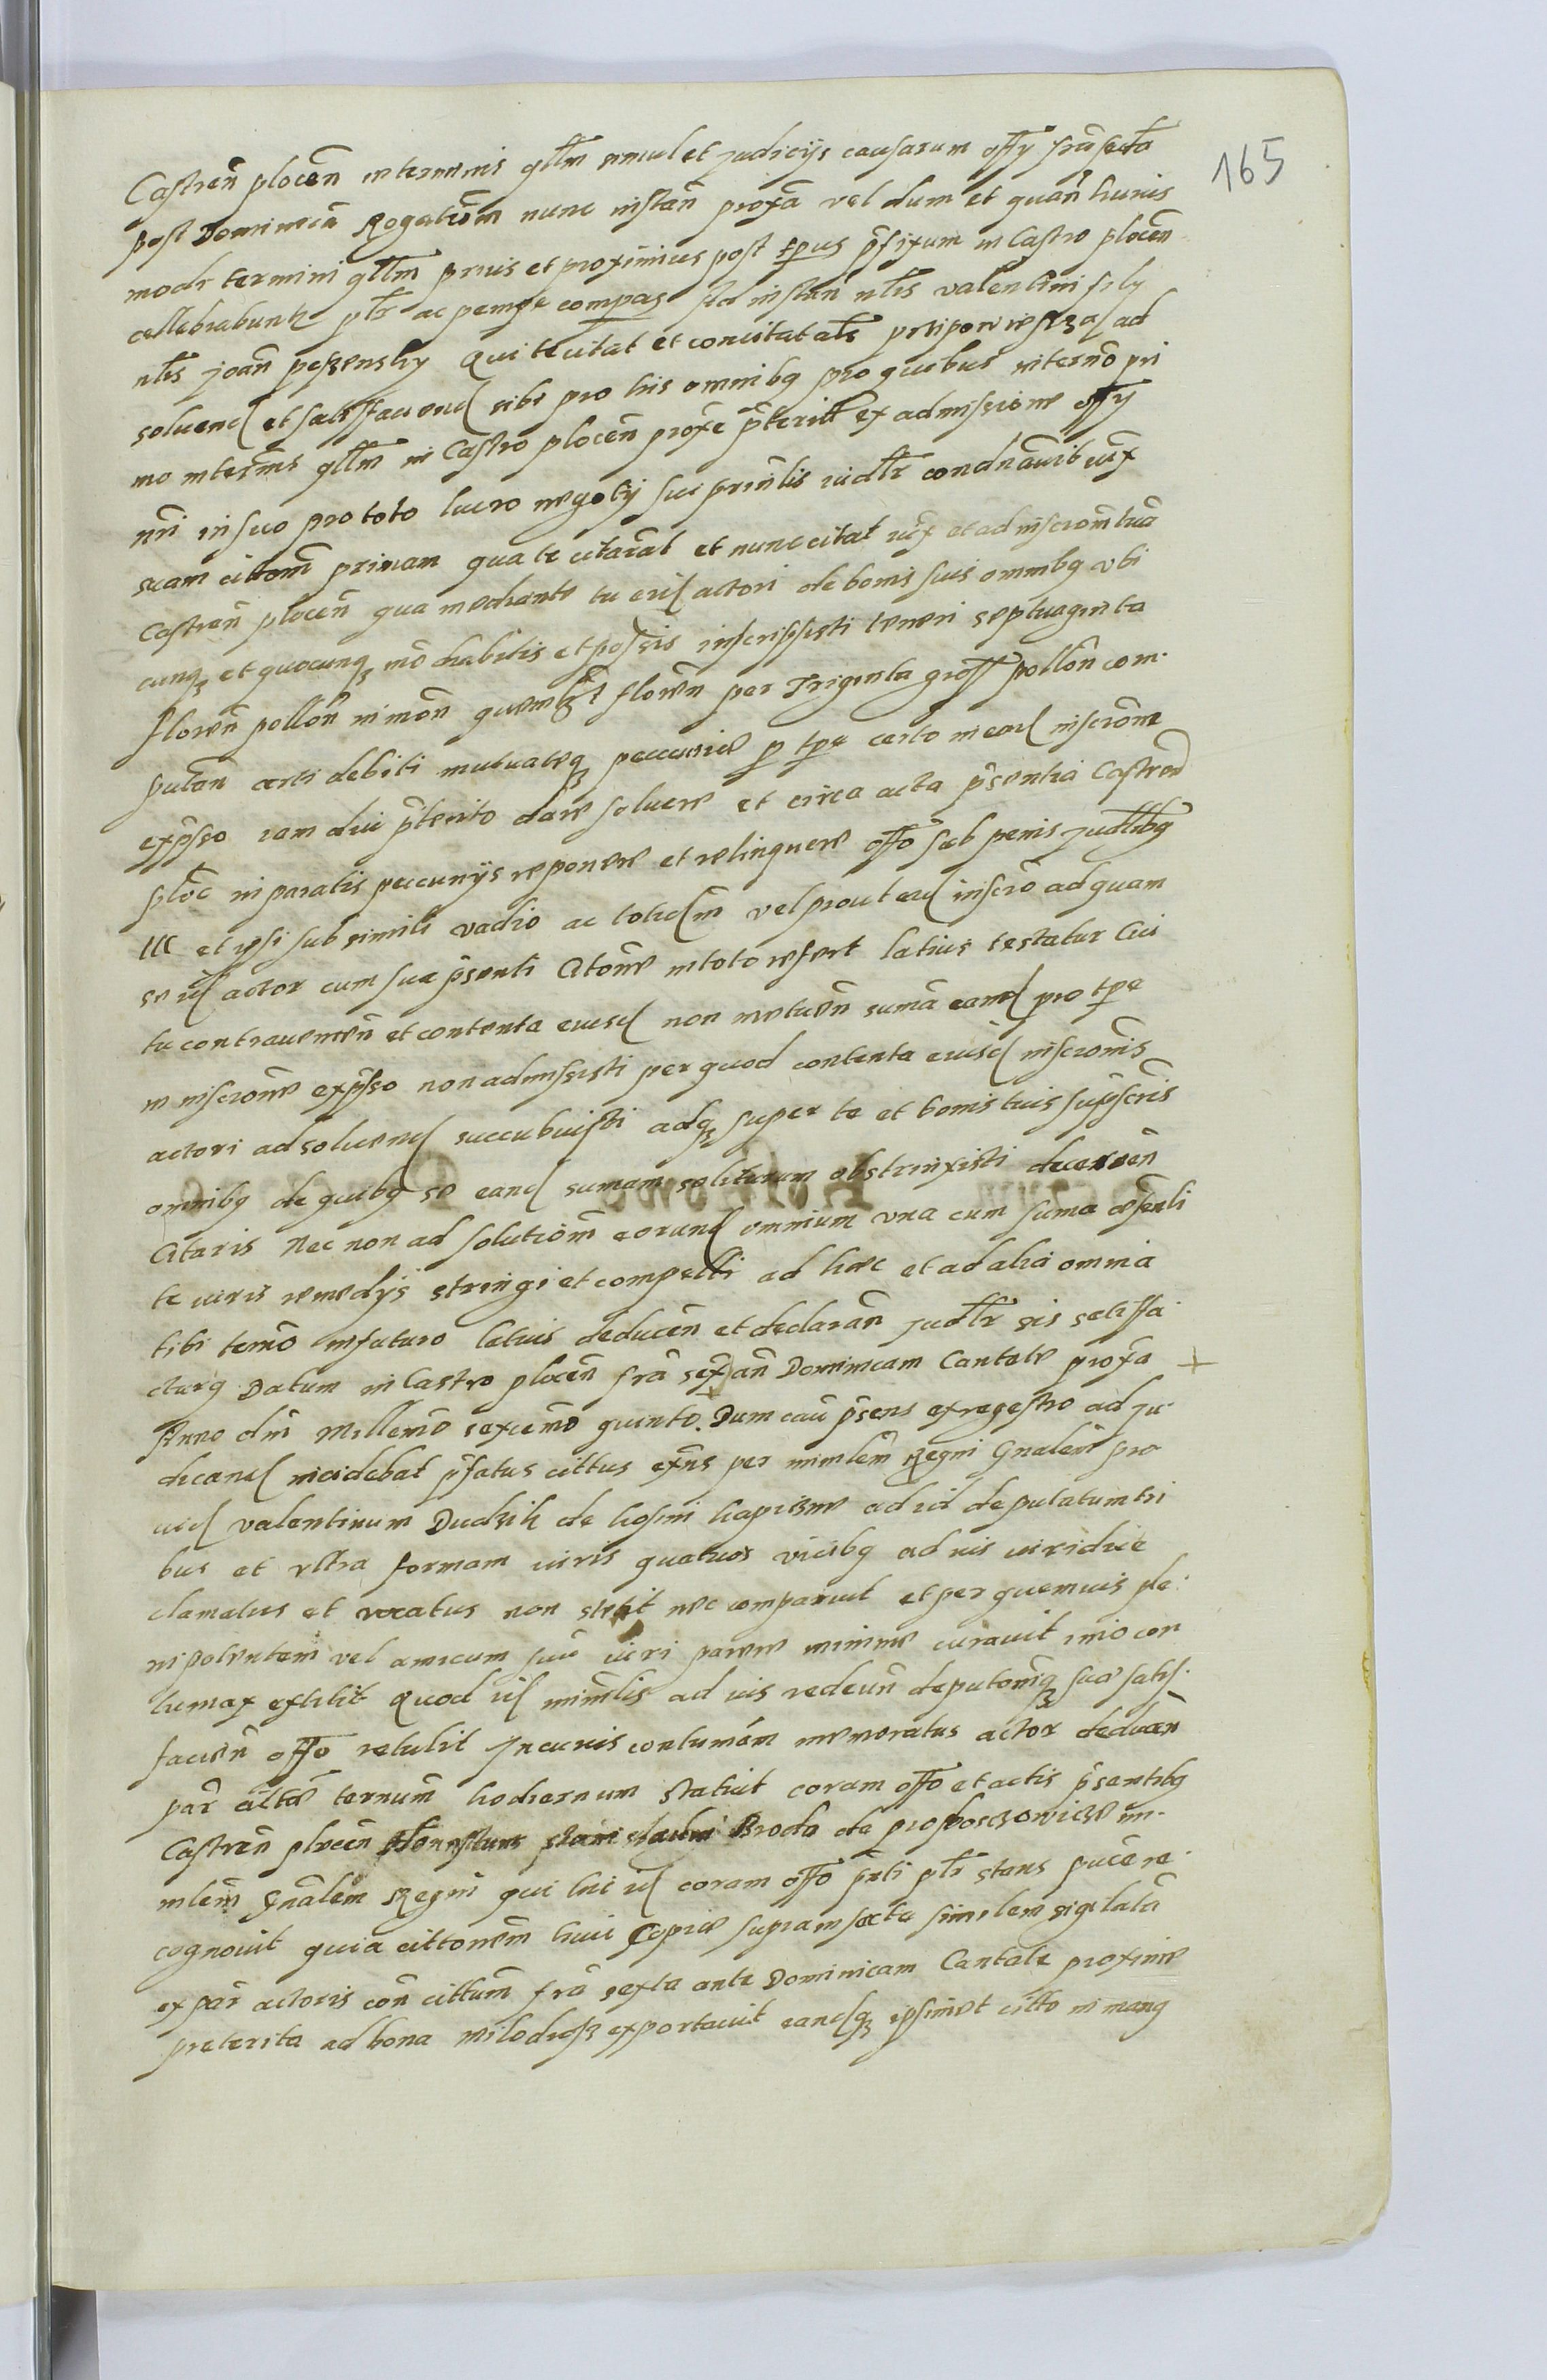 165
Castreñ ploceñ in terminis qllm simul et judicijs causarum offy fria sexta
post Dominicã Rogatiõm nunc instañ proxã vel dum et quañ huius
modi termini qllm prius et proximius post tpus pfixum in Castro ploceñ
cellebrabunt plr ac pempe compas Ad instañ nlis valentini fily
nlis joañ Qui te citat et concitat als ad
soluend et satisfaciend sibi pro his omnibq pro quibus in termõ pri
mo in termis qllm in Castro plocẽn proxẽ pterit ex admissione offy
nri in suo pro toto lucro negotij sui prinlis iudlr condnãuit iux
suam cittom primam qua te citarat et nunc citat iux et ad inscrom tuã
Castreñ ploceñ qua mediante tu eid actori de bonis suis omnibq vbi
cunq et quocunq mõ habitis et possis inscripsisti teneri septuaginta
floreñ polloñ in moñ quemlibet floreñ per Triginta gross polloñ com
putañ certi debiti mutuateq peccunie p tpe certo in ead inscrõne
expsso iam diu pterito dare soluere et circa acta psentia Castreñ
ploc in paratis peccunijs reponere et relinquere offõ sub penis judlibq
IIIC et ipsi sub simili vadio ac totid m vel prout ead inscrõ ad quam
se id actor cum sua psenti Citõne in toto refert latius testatur Cui
tu contraueneñ et contenta eiusd non metueñ sumã eand pro tpe
in inscrõne expsso non admissisti per quod contenta eiusd inscrõnis
actori ad soluend succubuisti adq super te et bonis tuis supscris
omnibq de quibq se eand sumam soliturum obstrinxisti
Citaris Nec non ad solutiõm eorund omnium vna cum suma
te iuris remedijs stringi et compelli ad hoc et ad alia omnia
tibi termõ in futuro latius deduceñ et declarañ judlr sis satisfa
cturq Datum in Castro ploceñ friã sex añ Dominicam Cantate proxã +
Anno dni Millemõ sexcemõ quinto. Dum caũ psens ex regestro ad ju
dicand incidebat pfatus cittus exns per mimlem Regni Gnalem pro
uid valentinum de ad id deputatum tri
bus et vltra formam iuris quatuor vicibq ad ius iuridice
clamatus et vocatus non stetit nec comparuit et per quemuis ple
nipotentem vel amicum suũ iuri parere minime curauit imo con
tumax extitit Quod id minlis ad ius redeuñ deputoniq sue satis
facieñ offo retulit In cuius contumam memoratus actor deduceñ
par ãlta terminũ hodiernum statuit coram offo et actis psentibq
Castreñ ploceñ stanislaum Broda de proboszczowicze mi
mlem gnãlem Regni qui hic id coram offõ pnti plr stans puce re
cognouit quia cittonem huic Copie supra inserta similem sigilatã
ex par actoris coñ cittum friã sexta ante Dominicam Cantate proxime
preterita ad bona exportauit eandq ipsimet citto in manq